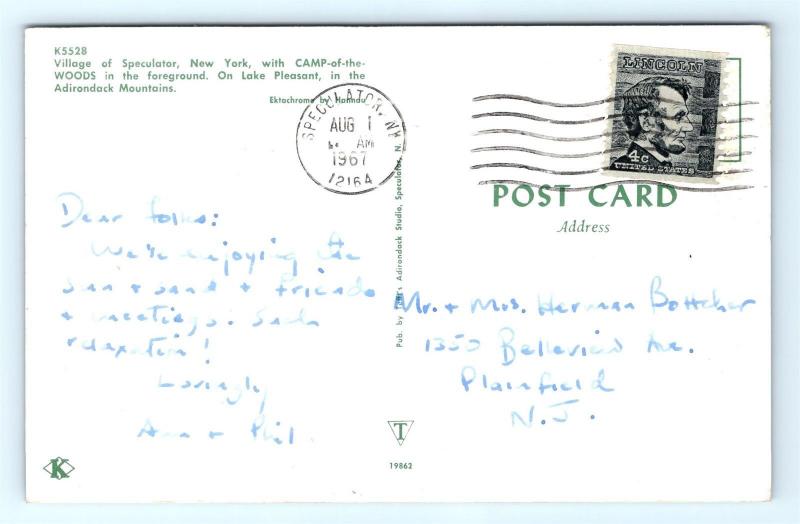 K5528
Village of Speculator, New York, with CAMP-of-the-
WOODS in the foreground. On Lake Pleasant, in the
Adirondack Mountains.
Ektachrome by Hannau
SPECULATOR, NY
AUG 1
AM
1967
12164
LINCOLN
4c
UNITED STATES
POST CARD
Address
Dear folks:
We're enjoying the
sun + sand + friends
+ meetings. Such
relaxation!
Lovingly
Ann + Phil
Pub. by Adirondack Studio, Speculator, N.
Mr. + Mrs. Herman Bottcher
1350 Belleview Ave.
Plainfield
N.J.
T
19862
K